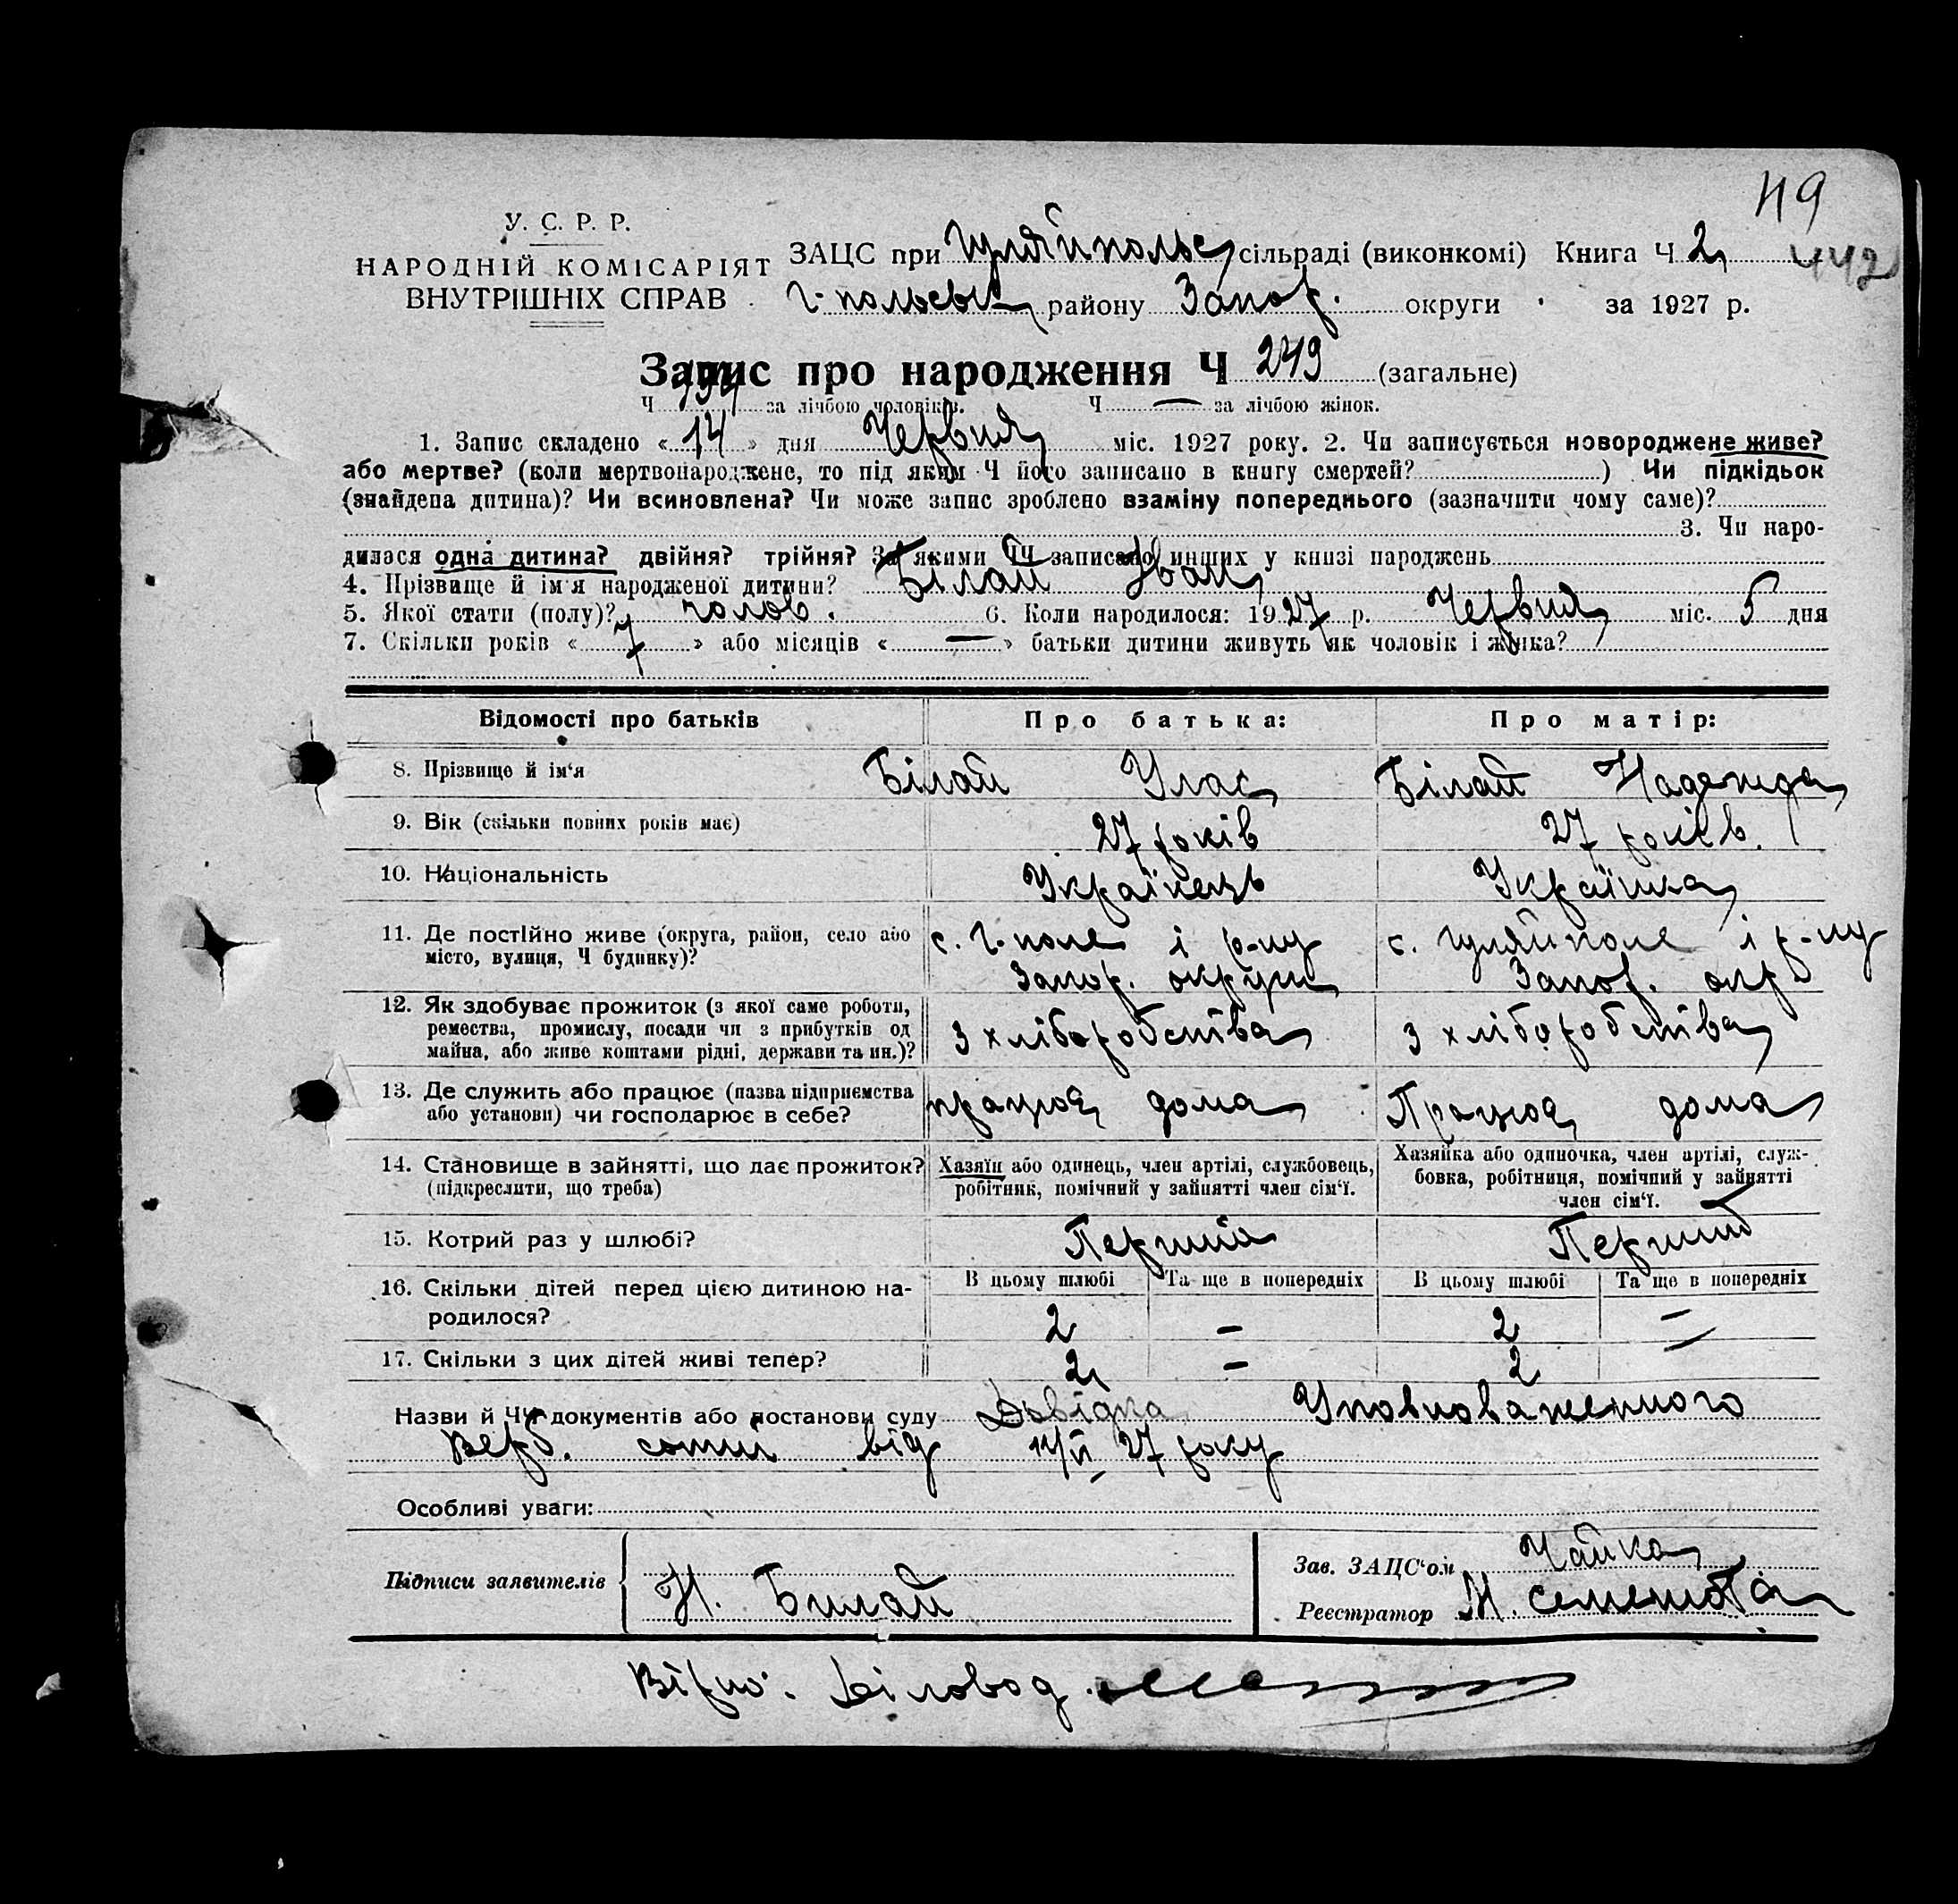 49
У. С. Р. Р.
НАРОДНІЙ КОМІСАРІЯТ
ВНУТРІШНІХ СПРАВ
ЗАЦС при Гуляйпольс сільраді (виконкомі) Книга Ч 2 442
Г-польськ району Запор. округи за 1927 р.
Запис про народження Ч 249 (загальне)
Ч 134 за лічбою чоловіків. Ч — за лічбою жінок.
1. Запис складено « 14 » дня Червня міс. 1927 року. 2. Чи записується новороджене живе?
або мертве? (коли мертвонароджене, то під яким Ч його записано в книгу смертей? ) Чи підкідьок
(знайдена дитина)? Чи всиновлена? Чи може запис зроблено взаміну попереднього (зазначити чому саме)?
3. Чи наро-
дилася одна дитина? двійня? трійня? За якими ЧЧ записано инших у книзі народжень
4. Прізвище й ім'я народженої дитини? Білай Іван
5. Якої стати (полу)? чолов. 6. Коли народилося: 1927 р. Червня міс. 5 дня
7. Скільки років « 7 » або місяців « — » батьки дитини живуть як чоловік і жінка?
Відомості про батьків Про батька: Про матір:
8. Прізвище й ім'я Білай Улас Білай Надежда
9. Вік (скільки повних років має) 27 років 27 років.
10. Національність Українець Українка
11. Де постійно живе (округа, район, село або с. Г-поле і р-ну с. Гуляйполе і р-ну
місто, вулиця, Ч будинку)? Запор. округи Запор. окр
12. Як здобуває прожиток (з якої саме роботи,
ремества, промислу, посади чи з прибутків од з хліборобства з хліборобства
майна, або живе коштами рідні, держави та ин.)?
13. Де служить або працює (назва підприємства працює дома Працює дома
або установи) чи господарює в себе?
14. Становище в зайнятті, що дає прожиток? Хазяїн або одинець, член артілі, службовець, Хазяйка або одиночка, член артілі, служ-
(підкреслити, що треба) робітник, помічний у зайнятті член сім'ї. бовка, робітниця, помічний у зайнятті
член сім'ї.
15. Котрий раз у шлюбі? Перший Перший
16. Скільки дітей перед цією дитиною на- В цьому шлюбі Та ще в попередніх В цьому шлюбі Та ще в попередніх
родилося? 2 – 2 –
17. Скільки з цих дітей живі тепер? 2 – 2
Назви й ЧЧ документів або постанови суду Довідка Уповноваженного
Верб. сотні від 14/VI 27 року
Особливі уваги:
Підписи заявителів Н. Билай
Зав. ЗАЦС'ом Чайка
Реєстратор М. Семенюта
Вірно: Діловод